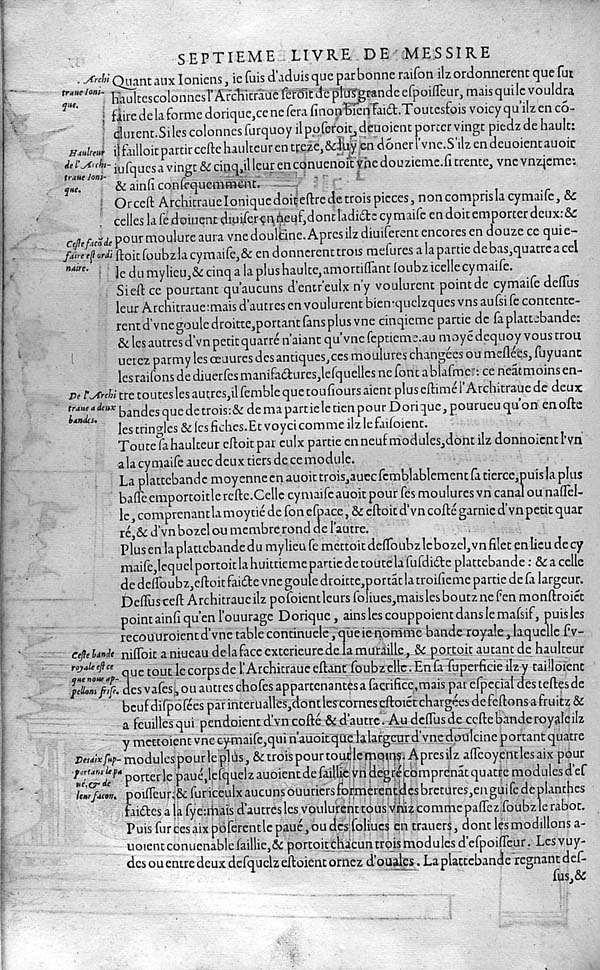 SEPTIEME LIVRE DE MESSIRE
Archi
traue Ioni-
que.
Quant aux Ioniens, ie suis d'aduis que par bonne raison ilz ordonnerent que sur
haultes colonnes l'Architraue seroit de plus grande espoisseur, mais qui le vouldra
faire de la forme dorique, ce ne sera sinon bien faict. Toutesfois voicy qu'ilz en cō-
clurent. Si les colonnes surquoy il poseroit, deuoient porter vingt piedz de hault:
Haulteur
de l'Archi-
traue Ioni-
que.
il failloit partir ceste haulteur en treze, & luy en dōner l'vne. S'ilz en deuoient auoir
iusques a vingt & cinq, il leur en conuenoit vne douzieme. si trente, vne vnzieme:
& ainsi consequemment.
Or cest Architraue Ionique doit estre de trois pieces, non compris la cymaise, &
celles la se doiuent diuiser en neuf, dont ladicte cymaise en doit emporter deux: &
Ceste facō de
faire est ordi
naire.
pour moulure aura vne doulcine. Apres ilz diuiserent encores en douze ce qui e-
stoit soubz la cymaise, & en donnerent trois mesures a la partie de bas, quatre a cel
le du mylieu, & cinq a la plus haulte, amortissant soubz icelle cymaise.
Si est ce pourtant qu'aucuns d'entr'eulx n'y voulurent point de cymaise dessus
leur Architraue: mais d'autres en voulurent bien. quelzques vns aussi se contente-
rent d'vne goule droitte, portant sans plus vne cinqieme partie de sa plattebande:
& les autres d'vn petit quarré n'aiant qu'vne septieme. au moyē dequoy vous trou
uerez parmy les œuures des antiques, ces moulures changées ou meslées, suyuant
les raisons de diuerses manifactures, lesquelles ne sont a blasmer: ce neātmoins en-
De l'Archi
traue a deux
bandes.
tre toutes les autres, il semble que tousiours aient plus estimé l'Architraue de deux
bandes que de trois: & de ma partie le tien pour Dorique, pourueu qu'on en oste
les tringles & les fiches. Et voyci comme ilz le faisoient.
Toute sa haulteur estoit par eulx partie en neuf modules, dont ilz donnoient l'vn
a la cymaise auec deux tiers de ce module.
La plattebande moyenne en auoit trois, auec semblablement sa tierce, puis la plus
basse emportoit le reste. Celle cymaise auoit pour ses moulures vn canal ou nassel-
le, comprenant la moytié de son espace, & estoit d'vn costé garnie d'vn petit quar
ré, & d'vn bozel ou membre rond de l'autre.
Plus en la plattebande du mylieu se mettoit dessoubz le bozel, vn filet en lieu de cy
maise, lequel portoit la huittieme partie de toute la susdicte plattebande: & a celle
de dessoubz, estoit faicte vne goule droitte, portāt la troisieme partie de sa largeur.
Dessus cest Architraue ilz posoient leurs soliues, mais les boutz ne s'en monstroiēt
point ainsi qu'en l'ouurage Dorique, ains les couppoient dans le massif, puis les
recouuroient d'vne table continuele, que ie nomme bande royale, laquelle fv-
Ceste bande
royale est ce
que nous ap-
pellons frise.
nissoit a niueau de la face exterieure de la muraille, & portoit autant de haulteur
que tout le corps de l'Architraue estant soubz elle. En sa superficie ilz y tailloient
des vases, ou autres choses appartenantes a sacrifice, mais par especial des testes de
beuf disposées par interualles, dont les cornes estoiēt chargées de festons a fruitz &
a feuilles qui pendoient d'vn costé & d'autre. Au dessus de ceste bande royale ilz
y mettoient vne cymaise, qui n'auoit que la largeur d'vne doulcine portant quatre
Des aix sup-
portans le pa
ué, & de
leur facon.
modules pour le plus, & trois pour tout le moins. Apres ilz asseoyent les aix pour
porter le paué, lesquelz auoient de saillie vn degré comprenāt quatre modules d'es
poisseur: & sur iceulx aucuns ouuriers formerent des bretures, en guise de planches
faictes a la sye: mais d'autres les voulurent tous vniz comme passez soubz le rabot.
Puis sur ces aix poserent le paué, ou des soliues en trauers, dont les modillons a-
uoient conuenable saillie, & portoit chacun trois modules d'espoisseur. Les vuy-
des ou entre deux desquelz estoient ornez d'ouales. La plattebande regnant des-
sus, &